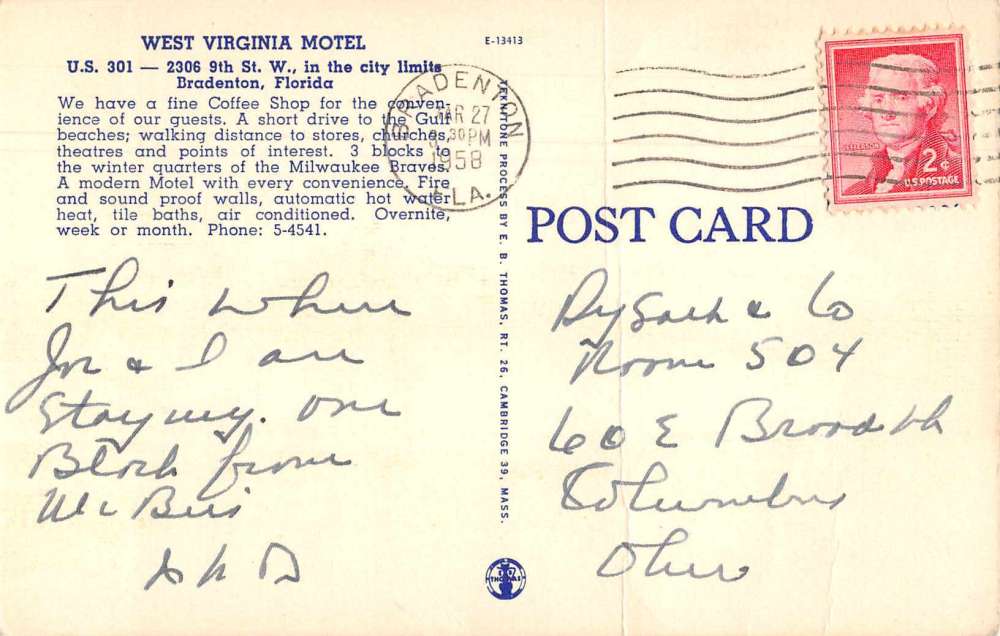 WEST VIRGINIA MOTEL
U.S. 301 — 2306 9th St. W., in the city limits
Bradenton, Florida
We have a fine Coffee Shop for the conven-
ience of our guests. A short drive to the Gulf
beaches; walking distance to stores, churches,
theatres and points of interest. 3 blocks to
the winter quarters of the Milwaukee Braves.
A modern Motel with every convenience. Fire
and sound proof walls, automatic hot water
heat, tile baths, air conditioned. Overnite,
week or month. Phone: 5-4541.
E-13413
BRADENTON
MAR 27
30 PM
1958
FLA.
JEFFERSON
2¢
U.S. POSTAGE
POST CARD
TEKNITONE PROCESS BY E. B. THOMAS, RT. 26, CAMBRIDGE 39, MASS.
THOMAS
This where
Joe & I are
Staying. one
Block from
& Co
Room 504
60 E Broad
Columbus
Ohio